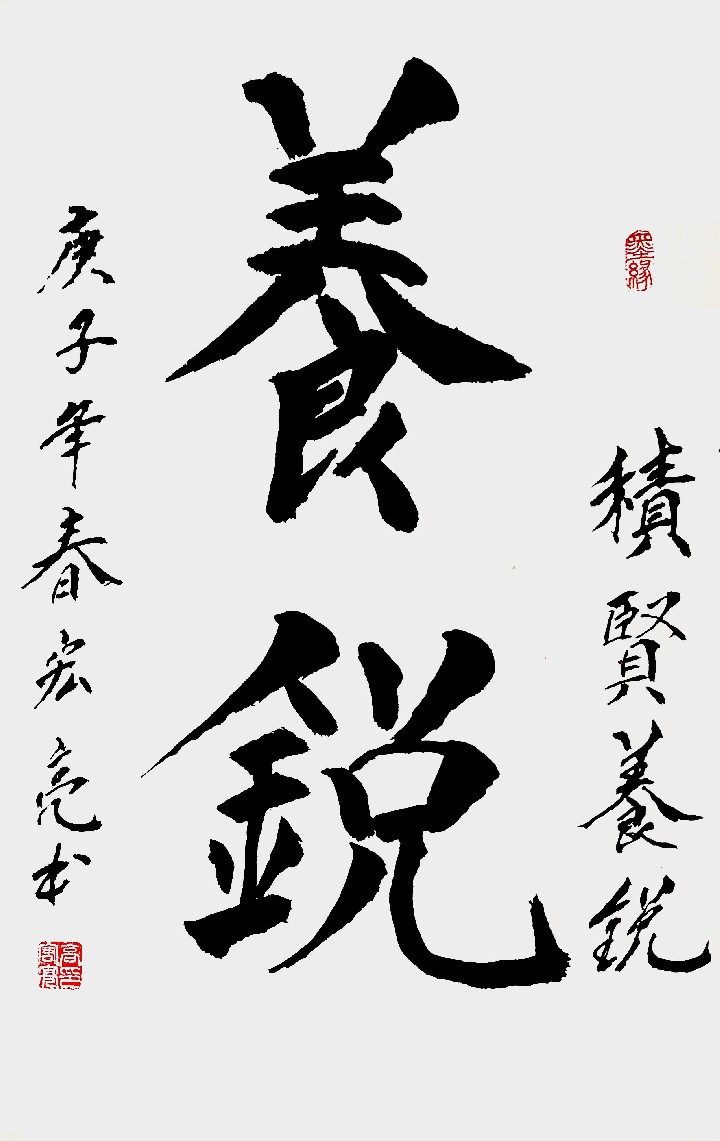 墨緣
積賢養鋭
養鋭
庚子年春宏亮书